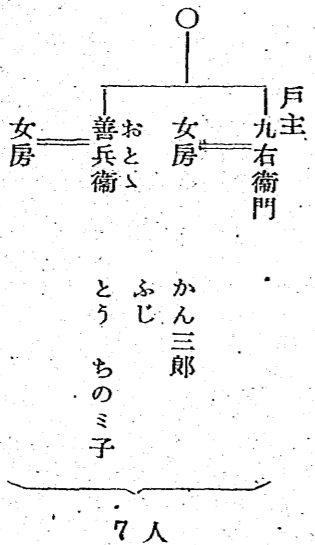 戸主
九右衞門
女房
おとゝ
善兵衞
女房
かん三郎
ふじ
とう ちのミ子
7人